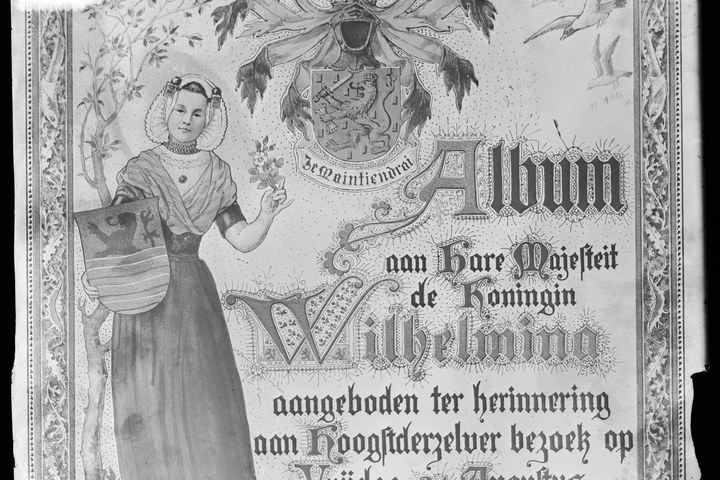 Je Maintiendrai
Album
aan Hare Majesteit
de Koningin
Wilhelmina
aangeboden ter herinnering
aan Hoogstderzelver bezoek op
Vrijdag Augustus